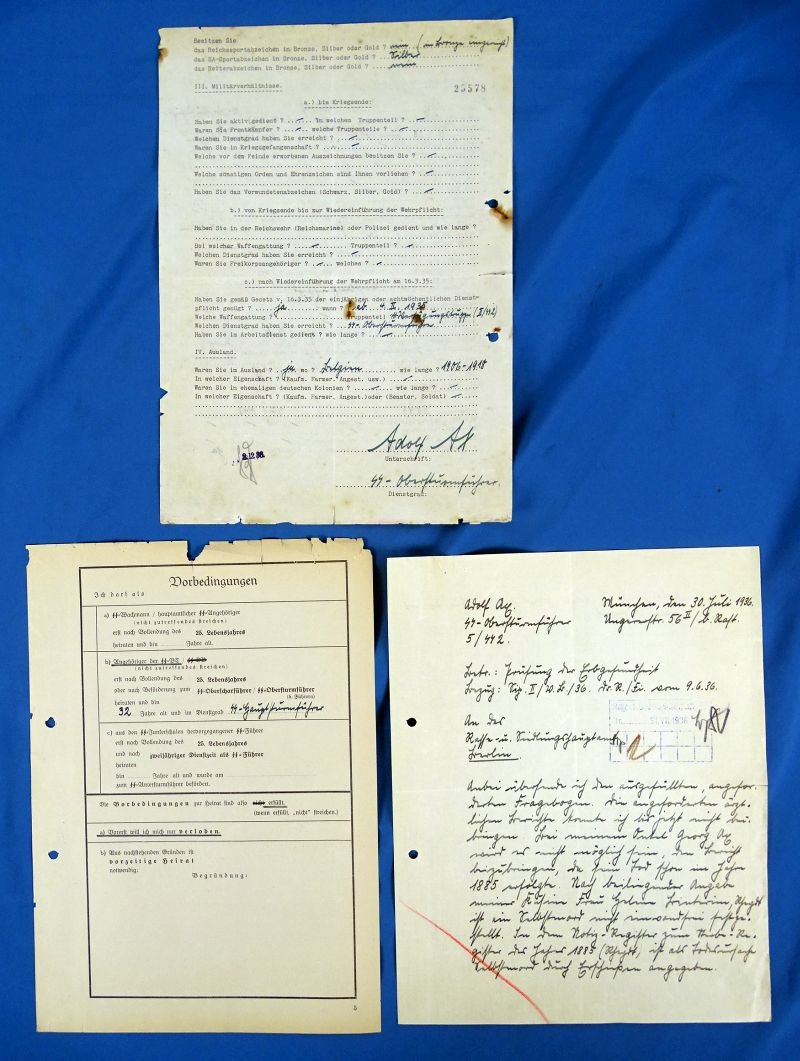 Besitzen Sie
das Reichssportabzeichen in Bronze, Silber oder Gold ? nein (in Bronze
das SA-Sportabzeichen in Bronze, Silber oder Gold ? Silber
das Reiterabzeichen in Bronze, Silber oder Gold ? nein
III. Militärverhältnisse.
23578
a.) bis Kriegsende:
Haben Sie aktiv gedient ? In welchem Truppenteil ?
Waren Sie Frontkämpfer ? welche Truppenteile ?
Welchen Dienstgrad haben Sie erreicht ?
Waren Sie in Kriegsgefangenschaft ?
Welche vor dem Feinde erworbenen Auszeichnungen besitzen Sie ?
Welche sonstigen Orden und Ehrenzeichen sind Ihnen verliehen ?
Haben Sie das Verwundetenabzeichen (Schwarz, Silber, Gold) ?
b.) von Kriegsende bis zur Wiedereinführung der Wehrpflicht:
Haben Sie in der Reichswehr (Reichsmarine) oder Polizei gedient und wie lange ?
Bei welcher Waffengattung ? Truppenteil ?
Welchen Dienstgrad haben Sie erreicht ?
Waren Sie Freikorpsangehöriger ? welches ?
c.) nach Wiedereinführung der Wehrpflicht am 16.3.35:
Haben Sie gemäß Gesetz v. 16.3.35 der einjährigen oder achtwöchentlichen Dienst-
pflicht genügt ? ja wann ? ab 4.
Welche Waffengattung Truppenteil
Welchen Dienstgrad haben Sie erreicht ? SS-Obersturmführer
Haben Sie im Arbeitsdienst gedient ? wie lange ?
IV. Ausland.
Waren Sie im Ausland ? ja wo ? Belgien wie lange ? 1906-1918
In welcher Eigenschaft ? (Kaufm. Farmer. Angest. usw.)
Waren Sie in ehemaligen deutschen Kolonien ? wie lange ?
In welcher Eigenschaft ? (Kaufm. Farmer. Angest.) oder (Beamter, Soldat)
Adolf Ax
Unterschrift:
SS-Obersturmführer.
Dienstgrad:
Vorbedingungen
Ich darf als
a) SS-Wachmann / hauptamtlicher SS-Angehöriger
(nicht zutreffendes streichen)
erst nach Vollendung des 25. Lebensjahres
heiraten und bin Jahre alt.
b) Angehöriger der SS-VT /
(nicht zutreffendes streichen)
erst nach Vollendung des 25. Lebensjahres
oder nach Beförderung zum SS-Oberscharführer / SS-Obersturmführer
(b. Führern)
heiraten und bin
32 Jahre alt und im Dienstgrad SS-Hauptsturmführer
c) aus den SS-Junkerschulen hervorgegangener SS-Führer
erst nach Vollendung des 25. Lebensjahres
und nach zweijähriger Dienstzeit als SS-Führer
heiraten
bin Jahre alt und wurde am
zum SS-Untersturmführer befördert.
Die Vorbedingungen zur Heirat sind also nicht erfüllt.
(wenn erfüllt, „nicht" streichen).
a) Vorerst will ich mich nur verloben.
b) Aus nachstehenden Gründen ist
vorzeitige Heirat
notwendig:
Begründung:
5
Adolf Ax.
SS-Obersturmführer
5/442.
München, den 30. Juli 1936.
Ungererstr. 56
Betr.: Prüfung der Erbgesundheit
Bezug: vom 9.6.36.
An das
Rasse- u. Siedlungshauptamt
Berlin.
Anbei übersende ich den ausgefüllten, angefor-
derten Fragebogen. Die angeforderten ärzt-
lichen Berichte konnte ich bis jetzt nicht bei-
bringen. Bei meinem Onkel Georg Ax
wird es nicht möglich sein, den Bericht
beizubringen, da sein Tod schon im Jahre
1885 erfolgte. Nach beiliegender Angabe
meiner Kusine Frau Helene
ist ein Selbstmord nicht einwandfrei festge-
stellt. In dem Notiz-Register zum Sterbe-Re-
gister des Jahres 1885 ist als Todesursache
Selbstmord durch Erschießen angegeben.